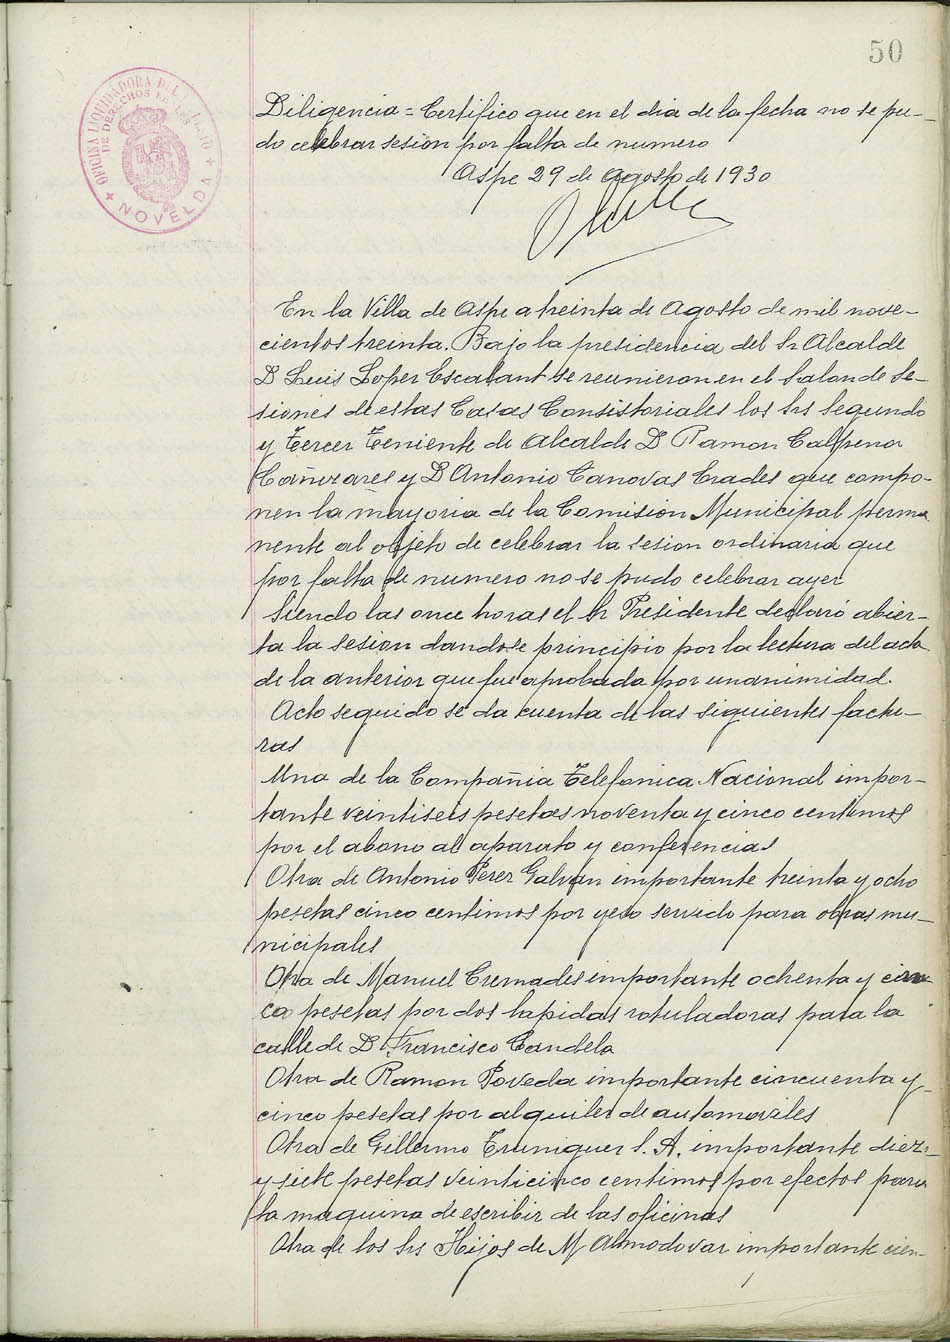 50
OFICINA LIQUIDADORA DEL
DE DERECHOS REALES
NOVELDA
Diligencia = Certifico que en el dia de la fecha no se pu-
do celebrar sesion por falta de numero
Aspe 29 de Agosto de 1930
En la Villa de Aspe a treinta de Agosto de mil nove-
cientos treinta. Bajo la presidencia del Sr Alcalde
D Luis Lopez Escalant se reunieron en el Salon de Se-
siones de estas Casas Consistoriales los Srs Segundo
y Tercer Teniente de Alcalde D Ramon Calpena
Cañizares y D Antonio Canovas Prades que compo-
nen la mayoria de la Comision Municipal perma
nente al objeto de celebrar la sesion ordinaria que
por falta de numero no se pudo celebrar ayer
Siendo las once horas el Sr Presidente declaró abier-
ta la sesion dandose principio por la lectura del acta
de la anterior que fue aprobada por unanimidad.
Acto seguido se da cuenta de las siguientes factu-
ras
Una de la Compañia Telefonica Nacional impor-
tante veintiseis pesetas noventa y cinco centimos
por el abono al aparato y conferencias
Otra de Antonio Perez Galvan importante treinta y ocho
pesetas cinco centimos por yeso servido para obras mu-
nicipales
Otra de Manuel Cremades importante ochenta y cin-
co pesetas por dos lapidas rotuladoras para la
calle de D Francisco Candela
Otra de Ramon Poveda importante cincuenta y
cinco pesetas por alquiler de automoviles
Otra de Gillermo Truniguer S. A. importante diez
y siete pesetas veinticinco centimos por efectos para
la maquina de escribir de las oficinas
Otra de los Srs Hijos de M Almodovar importante cien-